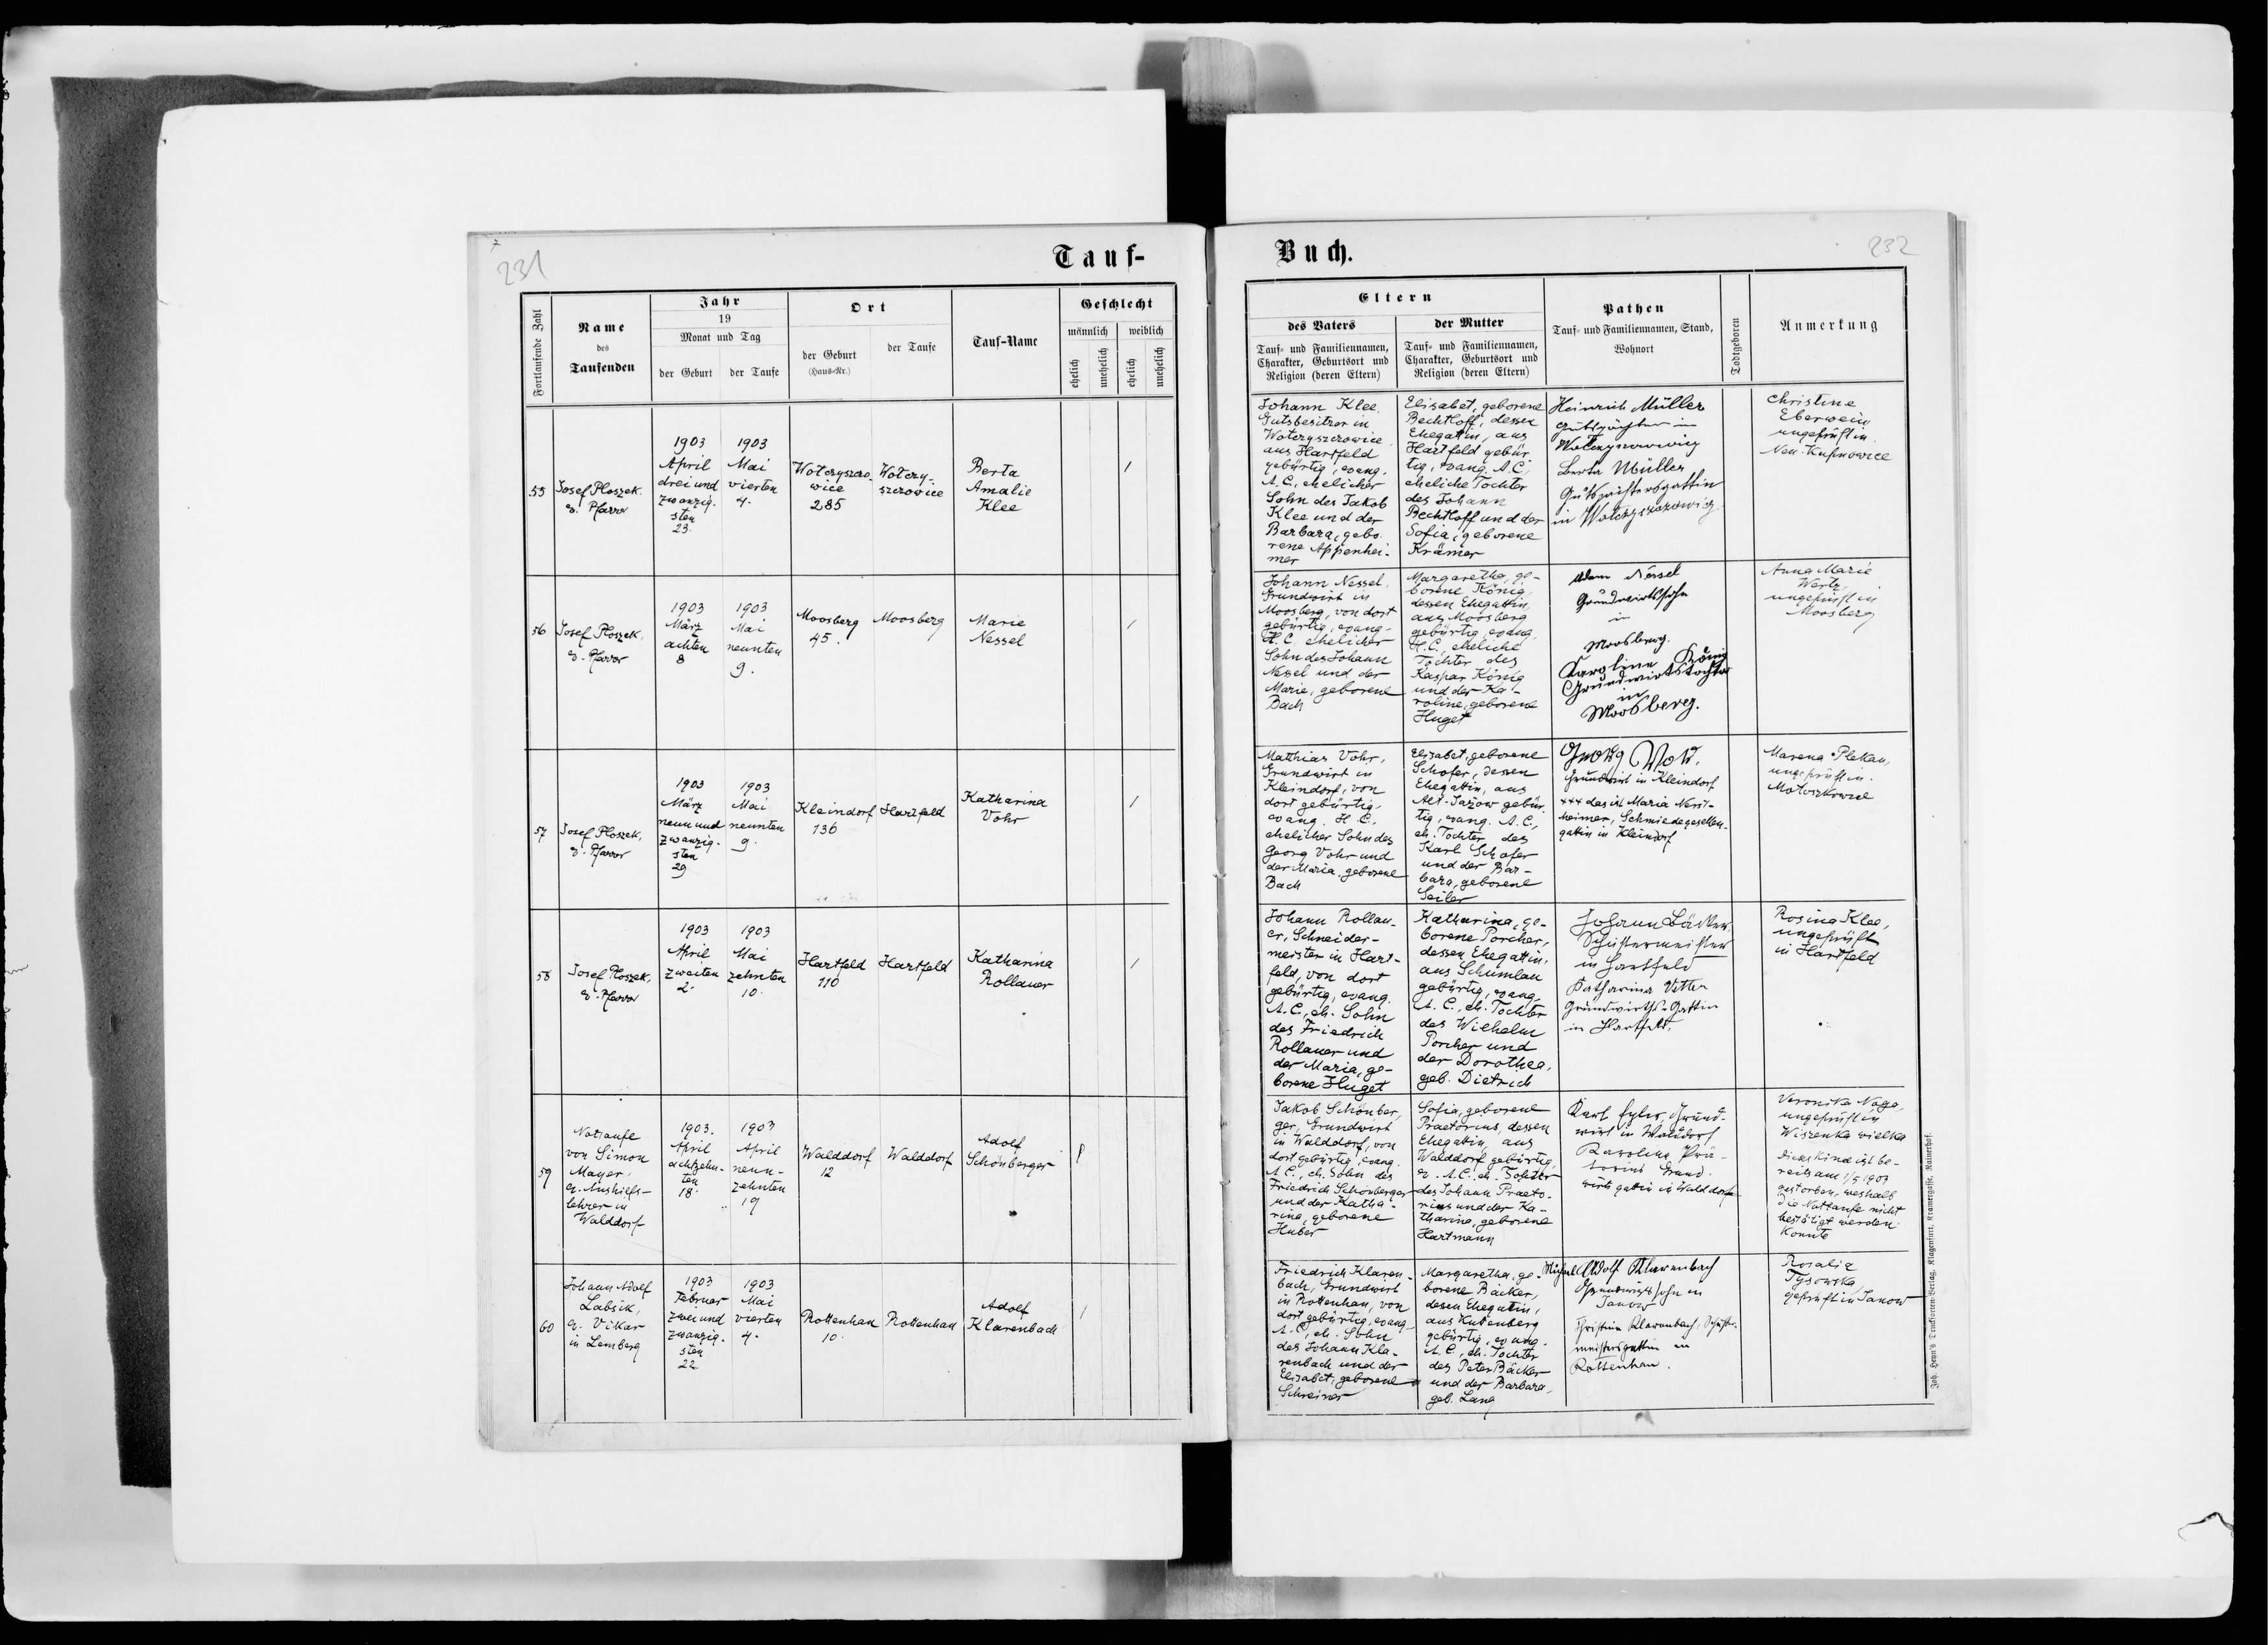 231
Tauf-
Fortlaufende Zahl
Name
des
Taufenden
Jahr
19
Monat und Tag
der Geburt
der Taufe
Ort
der Geburt
(Haus-Nr.)
der Taufe
Tauf-Name
Geschlecht
männlich
weiblich
ehelich
unehelich
ehelich
unehelich
55
Josef Ploszek.
ev. Pfarrer
1903
April
drei und
zwanzig-
sten
23.
1903
Mai
vierten
4.
Wołczyszczo-
wice
285
Wołczy-
szczowice
Berta
Amalie
Klee
/
56
Josef Ploszek.
ev. Pfarrer
1903
März
achten
8
1903
Mai
neunten
9.
Moosberg
45.
Moosberg
Marie
Nessel
/
57
Josef Ploszek,
ev. Pfarrer
1903
März
neun und
zwanzig-
sten
29
1903
Mai
neunten
9.
Kleindorf
136
Hartfeld
Katharina
Vohr
/
58
Josef Ploszek,
ev. Pfarrer
1903
April
zweiten
2.
1903
Mai
zehnten
10.
Hartfeld
110
Hartfeld
Katharina
Rollauer
/
59
Nottaufe
von Simon
Mayer,
ev. Aushilfs-
lehrer in
Walddorf
1903.
April
achtzehn-
ten
18.
1903
April
neun-
zehnten
19
Walddorf
12
Walddorf
Adolf
Schönberger
/
60
Johann Adolf
Labsik,
ev. Vikar
in Lemberg
1903
Februar
zwei und
zwanzig-
sten
22
1903
Mai
vierten
4.
Rottenhan
10.
Rottenhan
Adolf
Klarenbach
/
Buch.
232
Eltern
des Vaters
der Mutter
Tauf- und Familiennamen,
Charakter, Geburtsort und
Religion (deren Eltern)
Tauf- und Familiennamen,
Charakter, Geburtsort und
Religion (deren Eltern)
Pathen
Tauf- und Familiennamen, Stand,
Wohnort
Todtgeboren
Anmerkung
Johann Klee,
Gutsbesitzer in
Wołczyszczowice
aus Hartfeld
gebürtig, evang.
A.C., ehelicher
Sohn des Jakob
Klee und der
Barbara, gebo-
rene Appenhei-
mer
Elisabet, geborene
Bechtloff, dessen
Ehegattin, aus
Hartfeld gebür-
tig, evang. A.C.,
eheliche Tochter
des Johann
Bechtloff und der
Sofia, geborene
Krämer
Heinrich Müller
Gutspächter in
Berta Müller
Gutspächtersgattin
in
Christine
Eberwein
ungeprüft in
Neu-Kupnowice
Johann Nessel,
Grundwirt in
Moosberg, von dort
gebürtig, evang.
H.C. ehelicher
Sohn des Johann
Nessel und der
Marie, geborene
Bach
Margaretha, ge-
borene König,
dessen Ehegattin,
aus Moosberg
gebürtig, evang.
H.C., eheliche
Tochter des
Kaspar König
und der Ka-
roline, geborene
Huget
Adam Nessel
Grundwirtssohn
in
Moosberg.
Karoline König
Grundwirtstochter
in
Moosberg.
Anna Marie
Wertz,
ungeprüft in
Moosberg
Matthias Vohr,
Grundwirt in
Kleindorf, von
dort gebürtig,
evang. H.C.
ehelicher Sohn des
Georg Vohr und
der Maria, geborene
Bach
Elisabet, geborene
Schofer, dessen
Ehegattin, aus
Alt-Jazow gebür-
tig, evang. A.C.,
eh. Tochter des
Karl Schofer
und der Bar-
bara, geborene
Seiler
Georg
Grundwirt in Kleindorf
+++ das ist Maria
heimer, Schmiedegesellen-
gattin in Kleindorf
Marena Plekan,
ungeprüft in
Johann Rollau-
er, Schneider-
meister in Hart-
feld, von dort
gebürtig, evang.
A.C., eh. Sohn
des Friedrich
Rollauer und
der Maria, ge-
borene Huget
Katharina, ge-
borene Porcher,
dessen Ehegattin,
aus Schumlau
gebürtig, evang.
A.C., eh. Tochter
des Wilhelm
Porcher und
der Dorothea,
geb. Dietrich
Johann Bäcker
Schustermeister
in Hartfeld
Katharina Vetter
Grundwirths-Gattin
in Hartfeld.
Rosina Klee,
ungeprüft
in Hartfeld
Jakob Schönber-
ger, Grundwirt
in Walddorf, von
dort gebürtig, evang.
A.C., eh. Sohn des
Friedrich Schönberger
und der Katha-
rina, geborene
Huber
Sofia, geborene
Praetorius, dessen
Ehegattin, aus
Walddorf gebürtig,
ev. A.C., eh. Tochter
des Johann Praeto-
rius und der Ka-
tharina, geborene
Hartmann
Karl Grund-
wirt in Walddorf
Karolina Prä-
torius Grund-
wirts gattin in Walddorf
Veronika Naga,
ungeprüft in
Wiszenka wielka
Dieses Kind ist be-
reits am 1/5 1903
gestorben, weshalb
die Nottaufe nicht
bestätigt werden
konnte
Friedrich Klaren-
bach, Grundwirt
in Rottenhan, von
dort gebürtig, evang.
A.C., eh. Sohn
des Johann Kla-
renbach und der
Elisabet, geborene
Schreiner
Margaretha, ge-
borene Bäcker,
dessen Ehegattin,
aus Kuttenberg
gebürtig, evang.
A.C., eh. Tochter
des Peter Bäcker
und der Barbara,
geb. Lang
Adolf Klarenbach
Grundwirtssohn in
Janow
Christine Klarenbach, Schuster-
meistersgattin in
Rottenhan.
Rosalia
Tysowska,
geprüft in Janow
Joh. Heyn's Drucksorten-Verlag, Klagenfurt, Kramergasse, Rainerhof.